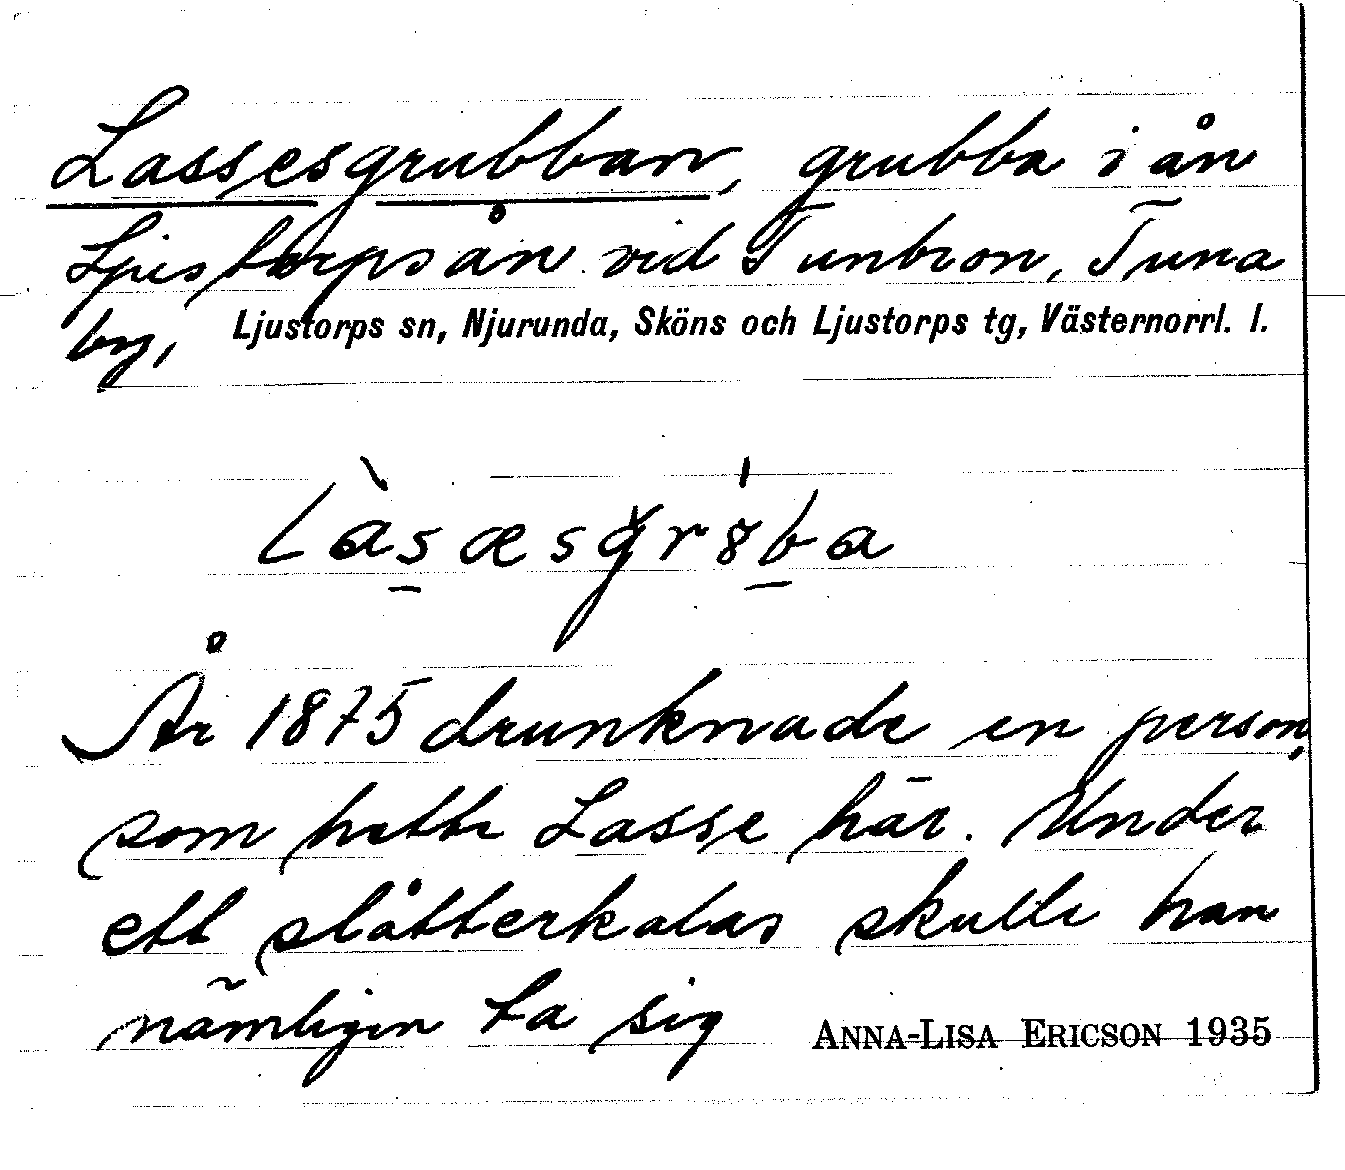 Lassesgrubban, grubba i ån
Ljustorpsån vid Tunbron, Tuna
by, Ljustorps sn, Njurunda, Sköns och Ljustorps tg, Västernorrl. l.
År 1875 drunknade en person,
som hette Lasse här. Under
ett slåtterkalas skulle han
nämligen ta sig
ANNA-LISA ERICSON 1935